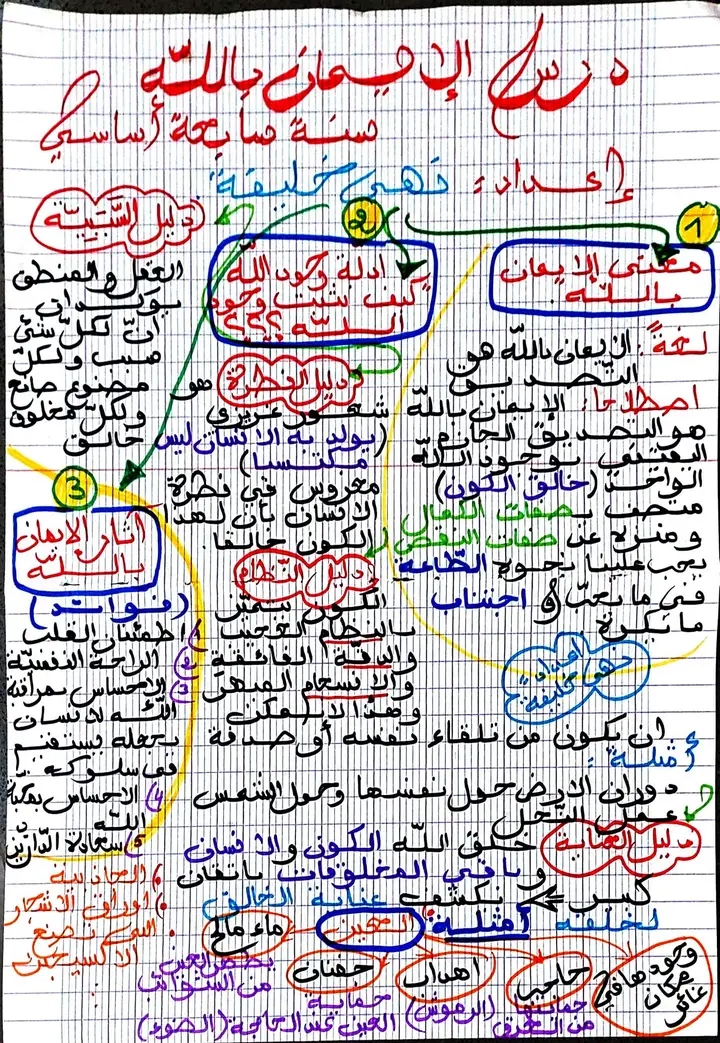 درس الإيمان بالله
سنة سابعة أساسي
إعداد: ذهبي خليفة
1
معنى الإيمان
بالله
لغة: الإيمان بالله هو
التصديق
اصطلاحا: الإيمان بالله
هو التصديق الجازم
بوجود الله
الواحد (خالق الكون)
متصف بصفات الكمال
ومنزه عن صفات النقص
يجب علينا نحوه الطاعة
في ما يحب و اجتناب
ما يكره
إعداد:
ذهبي خليفة
2
ادلة وجود الله
كيف نثبت وجود
الله ؟؟؟
دليل الفطرة هو
شعور غريزي
(يولد به الانسان ليس
مكتسبا)
مغروس في فطرة
الانسان بأن لهذا
الكون خالقا
دليل النظام
الكون يتميز
بالنظام العجيب
والدقة الفائقة
والانسجام المبهر
وهذا لا يمكن
ان يكون من تلقاء نفسه أو صدفة
أمثلة:
دوران الارض حول نفسها وحول الشمس
عمل النحل
دليل العناية خلق الله الكون والانسان
وباقي المخلوقات باتقان
كبير => يكشف عناية الخالق
لخلقه أمثلة: العين
ماء مالح
جفنان
اهداب
حاجب
وجودها في
مكان
غائر
يطهر العين
من الشوائب
حماية
العين عند الحاجة (الضوء)
(الرموش)
حمايتها
من العرق
دليل السببية
العقل والمنطق
يؤكدان
ان لكل شيء
سبب ولكل
مصنوع صانع
ولكل مخلوق
خالق
3
آثار الإيمان
بالله
(فوائد)
1) اطمئنان القلب
2) الراحة النفسية
3) الاحساس بمراقبة
الله للانسان
يجعله يستقيم
في سلوكه
4) الاحساس بمحبة
الله
5) سعادة الدارين
الجاذبية
اوراق الاشجار
التي تصنع
الاكسيجين